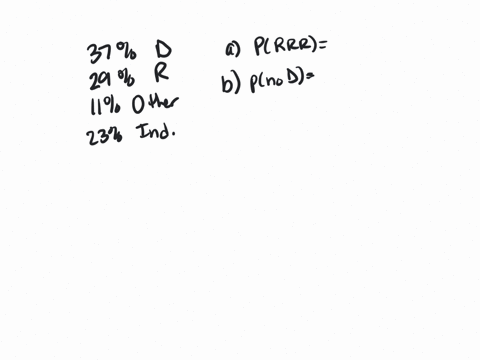 37% D
29% R
11% Other
23% Ind.
a) P(RRR)=
b) p(no D)=